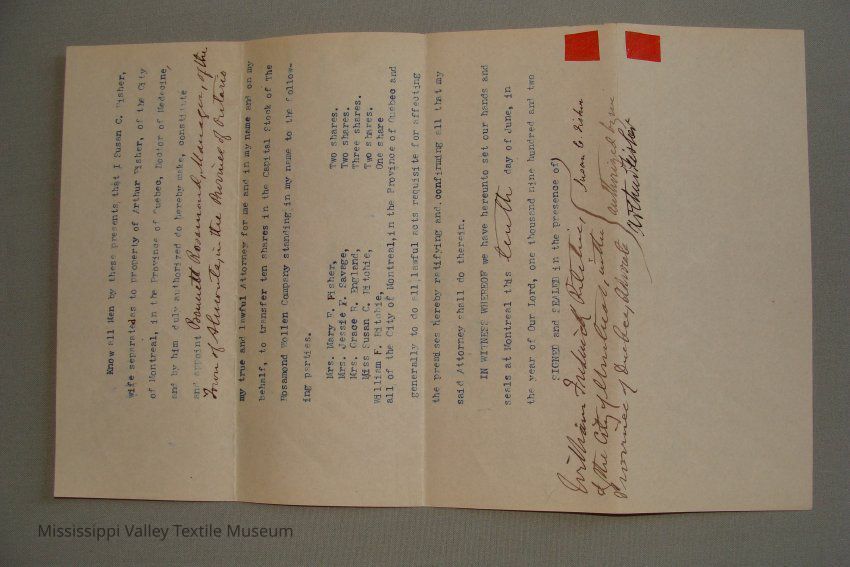 Know all Men by these presents, that I Susan C. Fisher,
wife separate as to property of Arthur Fisher, of the City
of Montreal, in the Province of Quebec, Doctor of Medecine,
and by him duly authorized do hereby make, constitute
and appoint Bennett Rosamond, Manager, of the
Town of Almonte, in the Province of Ontario
my true and lawful Attorney for me and in my name and on my
behalf, to transfer ten shares in the Capital Stock of The
Rosamond Wollen Company standing in my name to the follow-
ing parties.
Mrs. Mary E. Fisher, Two shares.
Mrs. Jessie F. Savage, Two shares.
Mrs. Grace R. England, Three shares.
Miss Susan C. Ritchie, Two shares.
William F. Ritchie, One share
all of the City of Montreal, in the Province of Quebec and
generally to do all lawful acts requisite for affecting
the premises hereby ratifying and confirming all that my
said Attorney shall do therein.
IN WITNESS WHEREOF we have hereunto set our hands and
seals at Montreal this tenth day of June, in
the year of Our Lord, one thousand nine hundred and two
SIGNED and SEALED in the presence of)
William Frederick Ritchie, Susan C. Fisher
of the City of Montreal, in the
Province of Quebec, Advocate authorized by me
Arthur Fisher
Mississippi Valley Textile Museum